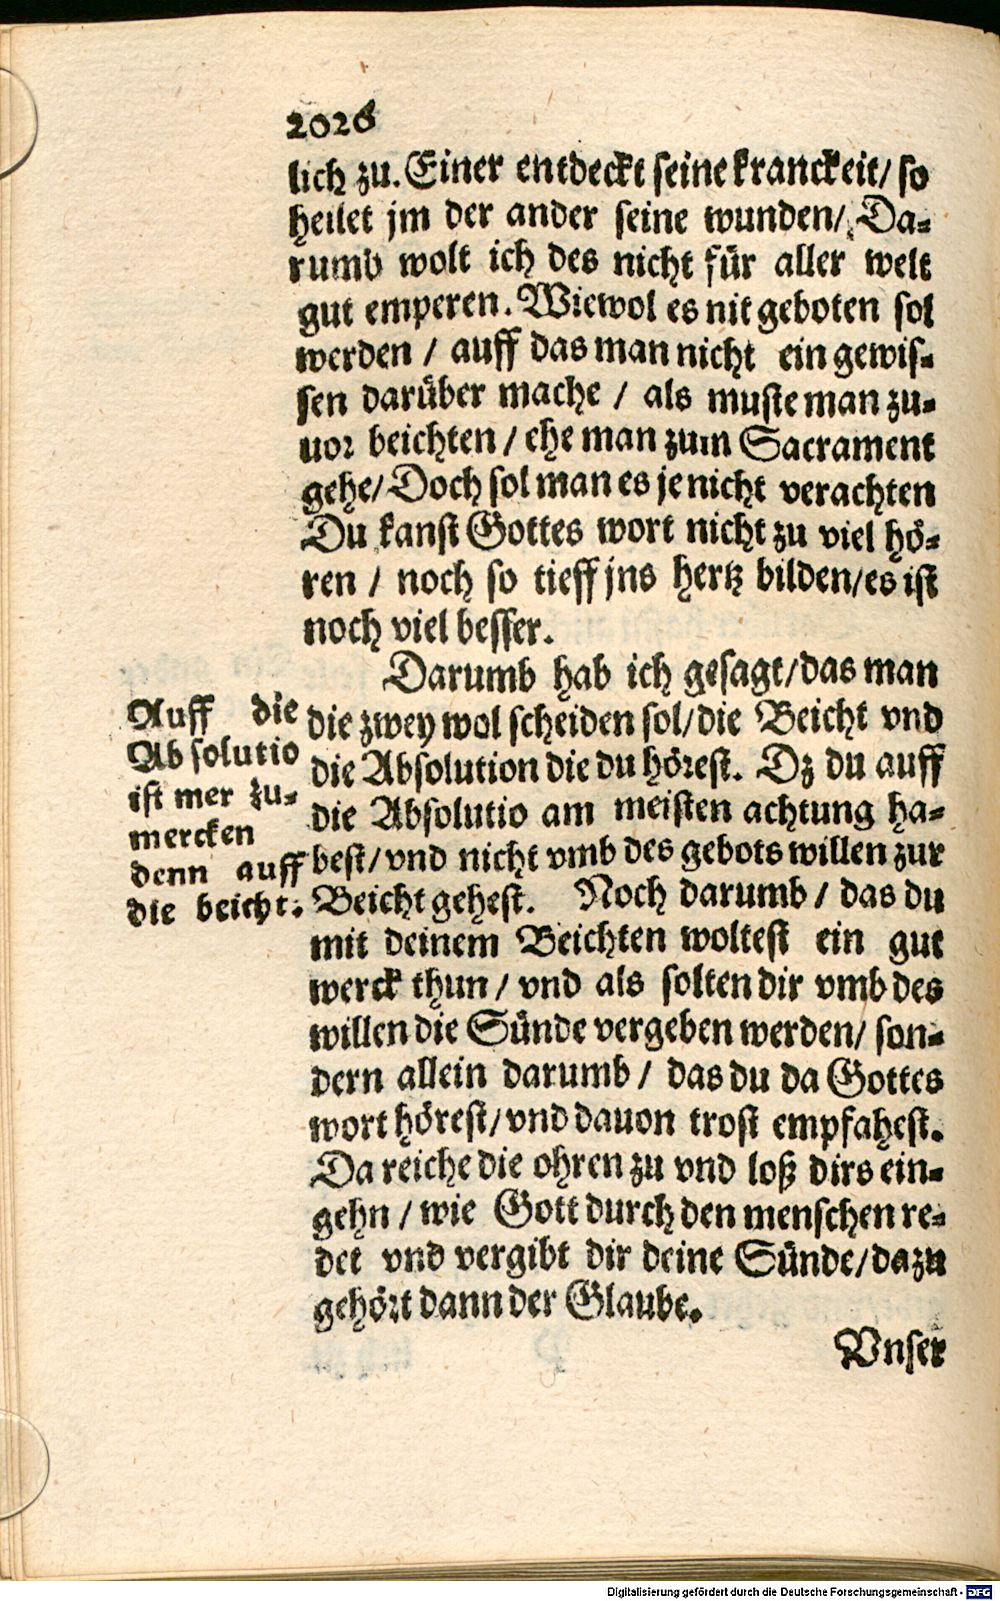 2026
lich zu. Einer entdeckt seine kranckeit/ so
heilet jm der ander seine wunden/ Da-
rumb wolt ich des nicht für aller welt
gut emperen. Wiewol es nit geboten sol
werden / auff das man nicht ein gewis-
sen darüber mache / als muste man zu-
uor beichten / ehe man zum Sacrament
gehe/ Doch sol man es je nicht verachten
Du kanst Gottes wort nicht zu viel hö-
ren / noch so tieff jns hertz bilden/es ist
noch viel besser.
Darumb hab ich gesagt/das man
die zwey wol scheiden sol/die Beicht vnd
die Absolution die du hörest. Dz du auff
die Absolutio am meisten achtung ha-
best/vnd nicht vmb des gebots willen zur
Beicht gehest. Noch darumb / das du
mit deinem Beichten woltest ein gut
werck thun / vnd als solten dir vmb des
willen die Sünde vergeben werden/ son-
dern allein darumb / das du da Gottes
wort hörest/vnd dauon trost empfahest.
Da reiche die ohren zu vnd loß dirs ein-
gehn / wie Gott durch den menschen re-
det vnd vergibt dir deine Sünde/dazu
gehört dann der Glaube.
Vnser
Auff die
Absolutio
ist mer zu-
mercken
denn auff
die beicht.
Digitalisierung gefördert durch die Deutsche Forschungsgemeinschaft - DFG